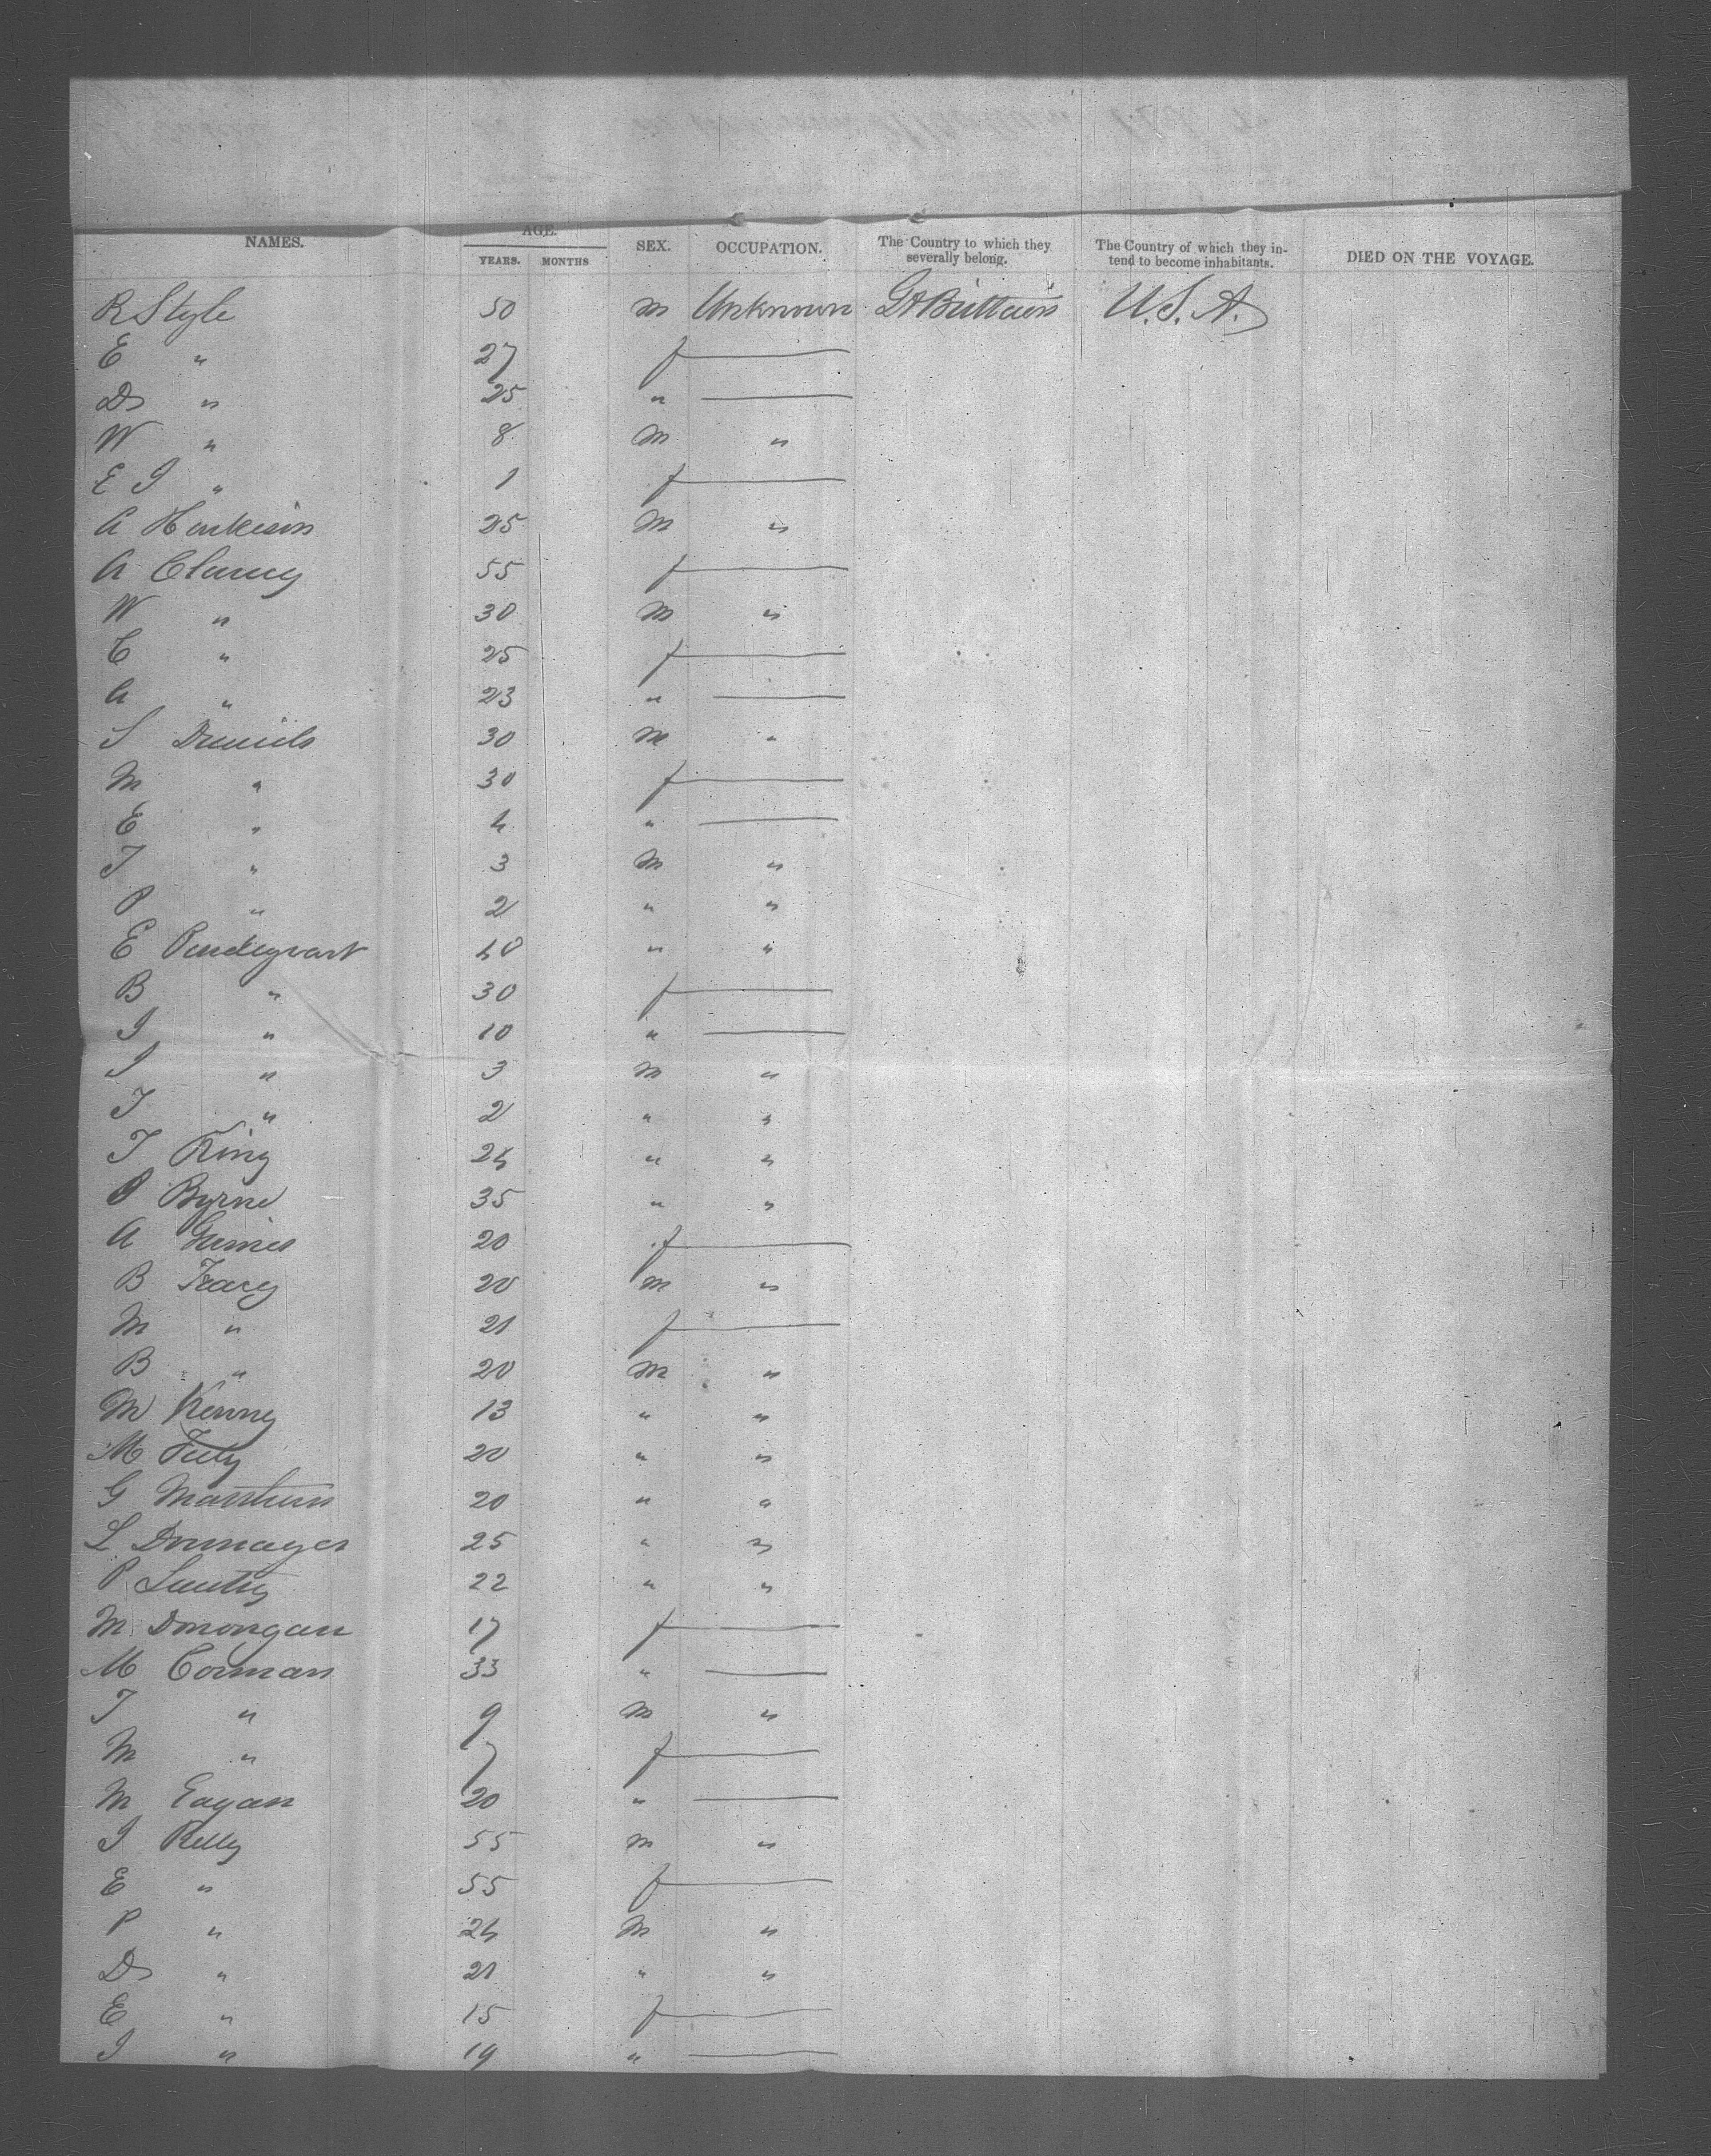 NAMES. AGE. YEARS. MONTHS SEX. OCCUPATION. The Country to which they severally belong. The Country of which they intend to become inhabitants. DIED ON THE VOYAGE.
R Style 50 m Unknown Gt Brittain U.S.A.
E " 27 f —
D " 25 " —
W " 8 m "
E J " 1 f —
A 25 m "
A Clancy 55 f —
W " 30 m "
C " 25 f —
A " 23 " —
S Daniels 30 m "
M " 30 f —
E " 4 " —
T " 3 m "
P " 2 " "
E Pendegrast 40 " "
B " 30 f —
J " 10 " —
J " 3 m "
T " 2 " "
T King 24 " "
P Byrne 35 " "
A 20 f —
B Tracy 20 m "
M " 21 f —
B " 20 m "
M Kenny 13 " "
M 20 " "
G 20 " "
L 25 " "
P 22 " "
M Donongan 17 f —
M Corman 33 " —
T " 9 m "
M " 7 f —
M Eagan 20 " —
J Kelly 55 m "
E " 55 f —
P " 24 m "
D " 21 " "
E " 15 f —
J " 19 " —